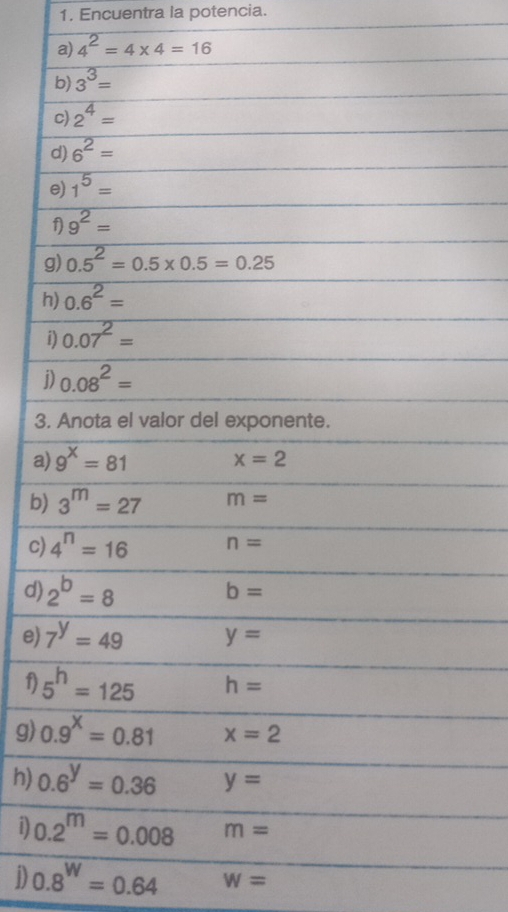 1. Encuentra la potencia.
a) 4² = 4 x 4 = 16
b) 3³ =
c) 2⁴ =
d) 6² =
e) 1⁵ =
f) 9² =
g) 0.5² = 0.5 x 0.5 = 0.25
h) 0.6² =
i) 0.07² =
j) 0.08² =
3. Anota el valor del exponente.
a) 9ˣ = 81 x = 2
b) 3ᵐ = 27 m =
c) 4ⁿ = 16 n =
d) 2ᵇ = 8 b =
e) 7ʸ = 49 y =
f) 5ʰ = 125 h =
g) 0.9ˣ = 0.81 x = 2
h) 0.6ʸ = 0.36 y =
i) 0.2ᵐ = 0.008 m =
j) 0.8ʷ = 0.64 w =